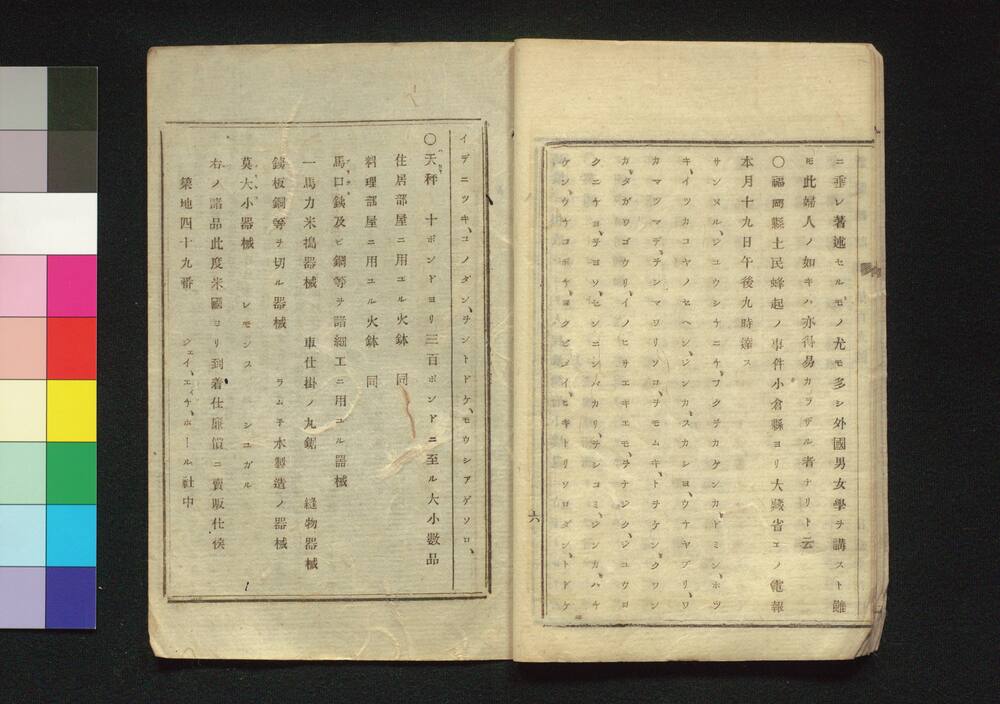 ニ垂レ著述セルモノ尤モ多シ外國男女學ヲ講スト雖
𪜈此婦人ノ如キハ亦得易カラザル者ナリト云
〇福岡縣土民蜂起ノ事件小倉縣ヨリ大藏省エノ電報
本月十九日午後九時達ス
サンヌル、ジユウシチニチ、フクチカケンカ、ドミン、ホツ
キ、イツカコヤノセヘン、ジンカ、スカシヨ、ウチヤブリ、ワ
カマツマデ、テンマワリソロ、ヲモムキ、トヲケン、クワン
カ、タガワゴウリ、イノヒザエキエモ、ラチジツ、ジユウロ
クニチヨ、ヲヨソ、センニンバカリ、ランヨミ、ジンカ、ハチ
ケン、ウチコボチ、ヨクビ、イヒキトリソロダン、トドケ
六
イデニツキ、コノダン、ヲントドケ、モウシアゲソロ、
〇天秤 十ポンドヨリ三百ポンドニ至ル大小數品
住居部屋ニ用ユル火鉢 同
料理部屋ニ用ユル火鉢 同
馬口鉄及ビ鋼等ヲ諸細工ニ用ユル器械
一馬力米搗器械 車仕掛ノ丸鋸 縫物器械
鋳板鋼等ヲ切ル器械 ラムチ水製造ノ器械
莫大小器械 レモンス シユガル
右ノ諸品此度米國ヨリ到着仕廉價ニ賣販仕候
築地四十九番 ジエイ、エイチ、ホール社中